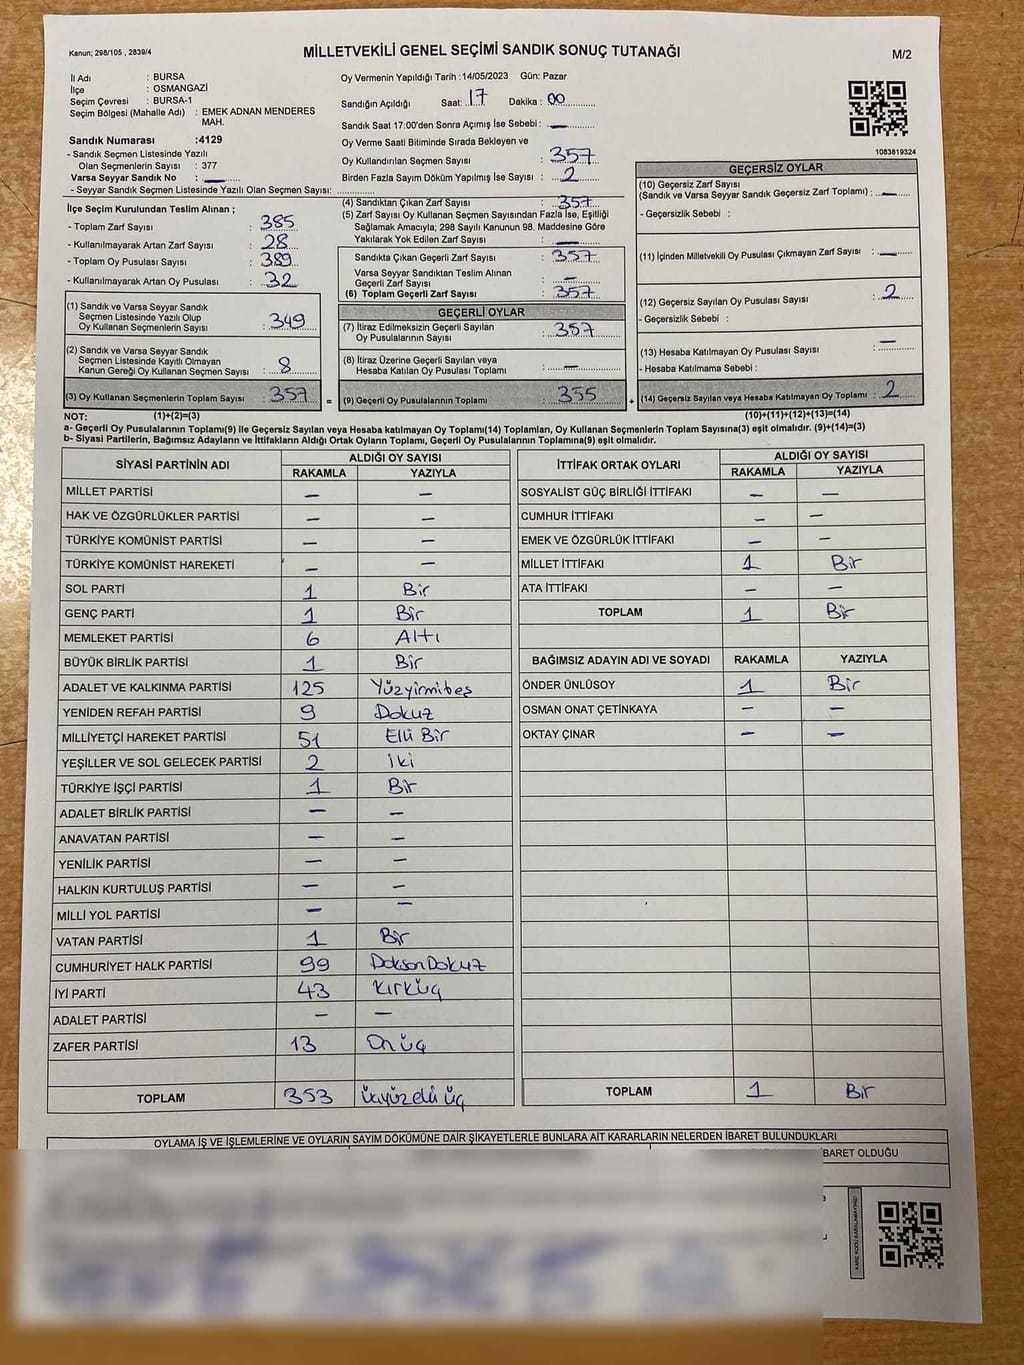 Kanun; 298/105 , 2839/4
MİLLETVEKİLİ GENEL SEÇİMİ SANDIK SONUÇ TUTANAĞI
M/2
İl Adı : BURSA
İlçe : OSMANGAZİ
Seçim Çevresi : BURSA-1
Seçim Bölgesi (Mahalle Adı) : EMEK ADNAN MENDERES MAH.
Sandık Numarası :4129
- Sandık Seçmen Listesinde Yazılı
Olan Seçmenlerin Sayısı : 377
Varsa Seyyar Sandık No : —
- Seyyar Sandık Seçmen Listesinde Yazılı Olan Seçmen Sayısı:
Oy Vermenin Yapıldığı Tarih :14/05/2023 Gün: Pazar
Sandığın Açıldığı Saat: 17 Dakika : 00
Sandık Saat 17:00'den Sonra Açımış İse Sebebi : —
Oy Verme Saati Bitiminde Sırada Bekleyen ve
Oy Kullandırılan Seçmen Sayısı : 357
Birden Fazla Sayım Döküm Yapılmış İse Sayısı : 2
1083819324
İlçe Seçim Kurulundan Teslim Alınan ;
- Toplam Zarf Sayısı : 385
- Kullanılmayarak Artan Zarf Sayısı : 28
- Toplam Oy Pusulası Sayısı : 389
- Kullanılmayarak Artan Oy Pusulası : 32
(1) Sandık ve Varsa Seyyar Sandık
Seçmen Listesinde Yazılı Olup
Oy Kullanan Seçmenlerin Sayısı : 349
(2) Sandık ve Varsa Seyyar Sandık
Seçmen Listesinde Kayıtlı Olmayan
Kanun Gereği Oy Kullanan Seçmen Sayısı : 8
(3) Oy Kullanan Seçmenlerin Toplam Sayısı : 357 =
(4) Sandıktan Çıkan Zarf Sayısı : 357
(5) Zarf Sayısı Oy Kullanan Seçmen Sayısından Fazla İse, Eşitliği
Sağlamak Amacıyla; 298 Sayılı Kanunun 98. Maddesine Göre
Yakılarak Yok Edilen Zarf Sayısı : —
Sandıkta Çıkan Geçerli Zarf Sayısı : 357
Varsa Seyyar Sandıktan Teslim Alınan
Geçerli Zarf Sayısı : —
(6) Toplam Geçerli Zarf Sayısı : 357
GEÇERLİ OYLAR
(7) İtiraz Edilmeksizin Geçerli Sayılan
Oy Pusulalarının Sayısı : 357
(8) İtiraz Üzerine Geçerli Sayılan veya
Hesaba Katılan Oy Pusulası Toplamı : —
(9) Geçerli Oy Pusulalarının Toplamı : 355 +
GEÇERSİZ OYLAR
(10) Geçersiz Zarf Sayısı
(Sandık ve Varsa Seyyar Sandık Geçersiz Zarf Toplamı) : —
- Geçersizlik Sebebi :
(11) İçinden Milletvekili Oy Pusulası Çıkmayan Zarf Sayısı : —
(12) Geçersiz Sayılan Oy Pusulası Sayısı : 2
- Geçersizlik Sebebi :
(13) Hesaba Katılmayan Oy Pusulası Sayısı : —
- Hesaba Katılmama Sebebi :
(14) Geçersiz Sayılan veya Hesaba Katılmayan Oy Toplamı : 2
NOT: (1)+(2)=(3) (10)+(11)+(12)+(13)=(14)
a- Geçerli Oy Pusulalarının Toplamı(9) ile Geçersiz Sayılan veya Hesaba katılmayan Oy Toplamı(14) Toplamları, Oy Kullanan Seçmenlerin Toplam Sayısına(3) eşit olmalıdır. (9)+(14)=(3)
b- Siyasi Partilerin, Bağımsız Adayların ve İttifakların Aldığı Ortak Oyların Toplamı, Geçerli Oy Pusulalarının Toplamına(9) eşit olmalıdır.
SİYASİ PARTİNİN ADI ALDIĞI OY SAYISI
RAKAMLA YAZIYLA
MİLLET PARTİSİ — —
HAK VE ÖZGÜRLÜKLER PARTİSİ — —
TÜRKİYE KOMÜNİST PARTİSİ — —
TÜRKİYE KOMÜNİST HAREKETİ — —
SOL PARTİ 1 Bir
GENÇ PARTİ 1 Bir
MEMLEKET PARTİSİ 6 Altı
BÜYÜK BİRLİK PARTİSİ 1 Bir
ADALET VE KALKINMA PARTİSİ 125 Yüzyirmibeş
YENİDEN REFAH PARTİSİ 9 Dokuz
MİLLİYETÇİ HAREKET PARTİSİ 51 Elli Bir
YEŞİLLER VE SOL GELECEK PARTİSİ 2 İki
TÜRKİYE İŞÇİ PARTİSİ 1 Bir
ADALET BİRLİK PARTİSİ — —
ANAVATAN PARTİSİ — —
YENİLİK PARTİSİ — —
HALKIN KURTULUŞ PARTİSİ — —
MİLLİ YOL PARTİSİ — —
VATAN PARTİSİ 1 Bir
CUMHURİYET HALK PARTİSİ 99 DoksanDokuz
İYİ PARTİ 43 Kırküç
ADALET PARTİSİ — —
ZAFER PARTİSİ 13 Onüç
TOPLAM 353 üçyüzelli üç
İTTİFAK ORTAK OYLARI ALDIĞI OY SAYISI
RAKAMLA YAZIYLA
SOSYALİST GÜÇ BİRLİĞİ İTTİFAKI — —
CUMHUR İTTİFAKI — —
EMEK VE ÖZGÜRLÜK İTTİFAKI — —
MİLLET İTTİFAKI 1 Bir
ATA İTTİFAKI — —
TOPLAM 1 Bir
BAĞIMSIZ ADAYIN ADI VE SOYADI RAKAMLA YAZIYLA
ÖNDER ÜNLÜSOY 1 Bir
OSMAN ONAT ÇETİNKAYA — —
OKTAY ÇINAR — —
TOPLAM 1 Bir
OYLAMA İŞ VE İŞLEMLERİNE VE OYLARIN SAYIM DÖKÜMÜNE DAİR ŞİKAYETLERLE BUNLARA AİT KARARLARIN NELERDEN İBARET BULUNDUKLARI
İBARET OLDUĞU
KARE KODU KARALAMAYINIZ!